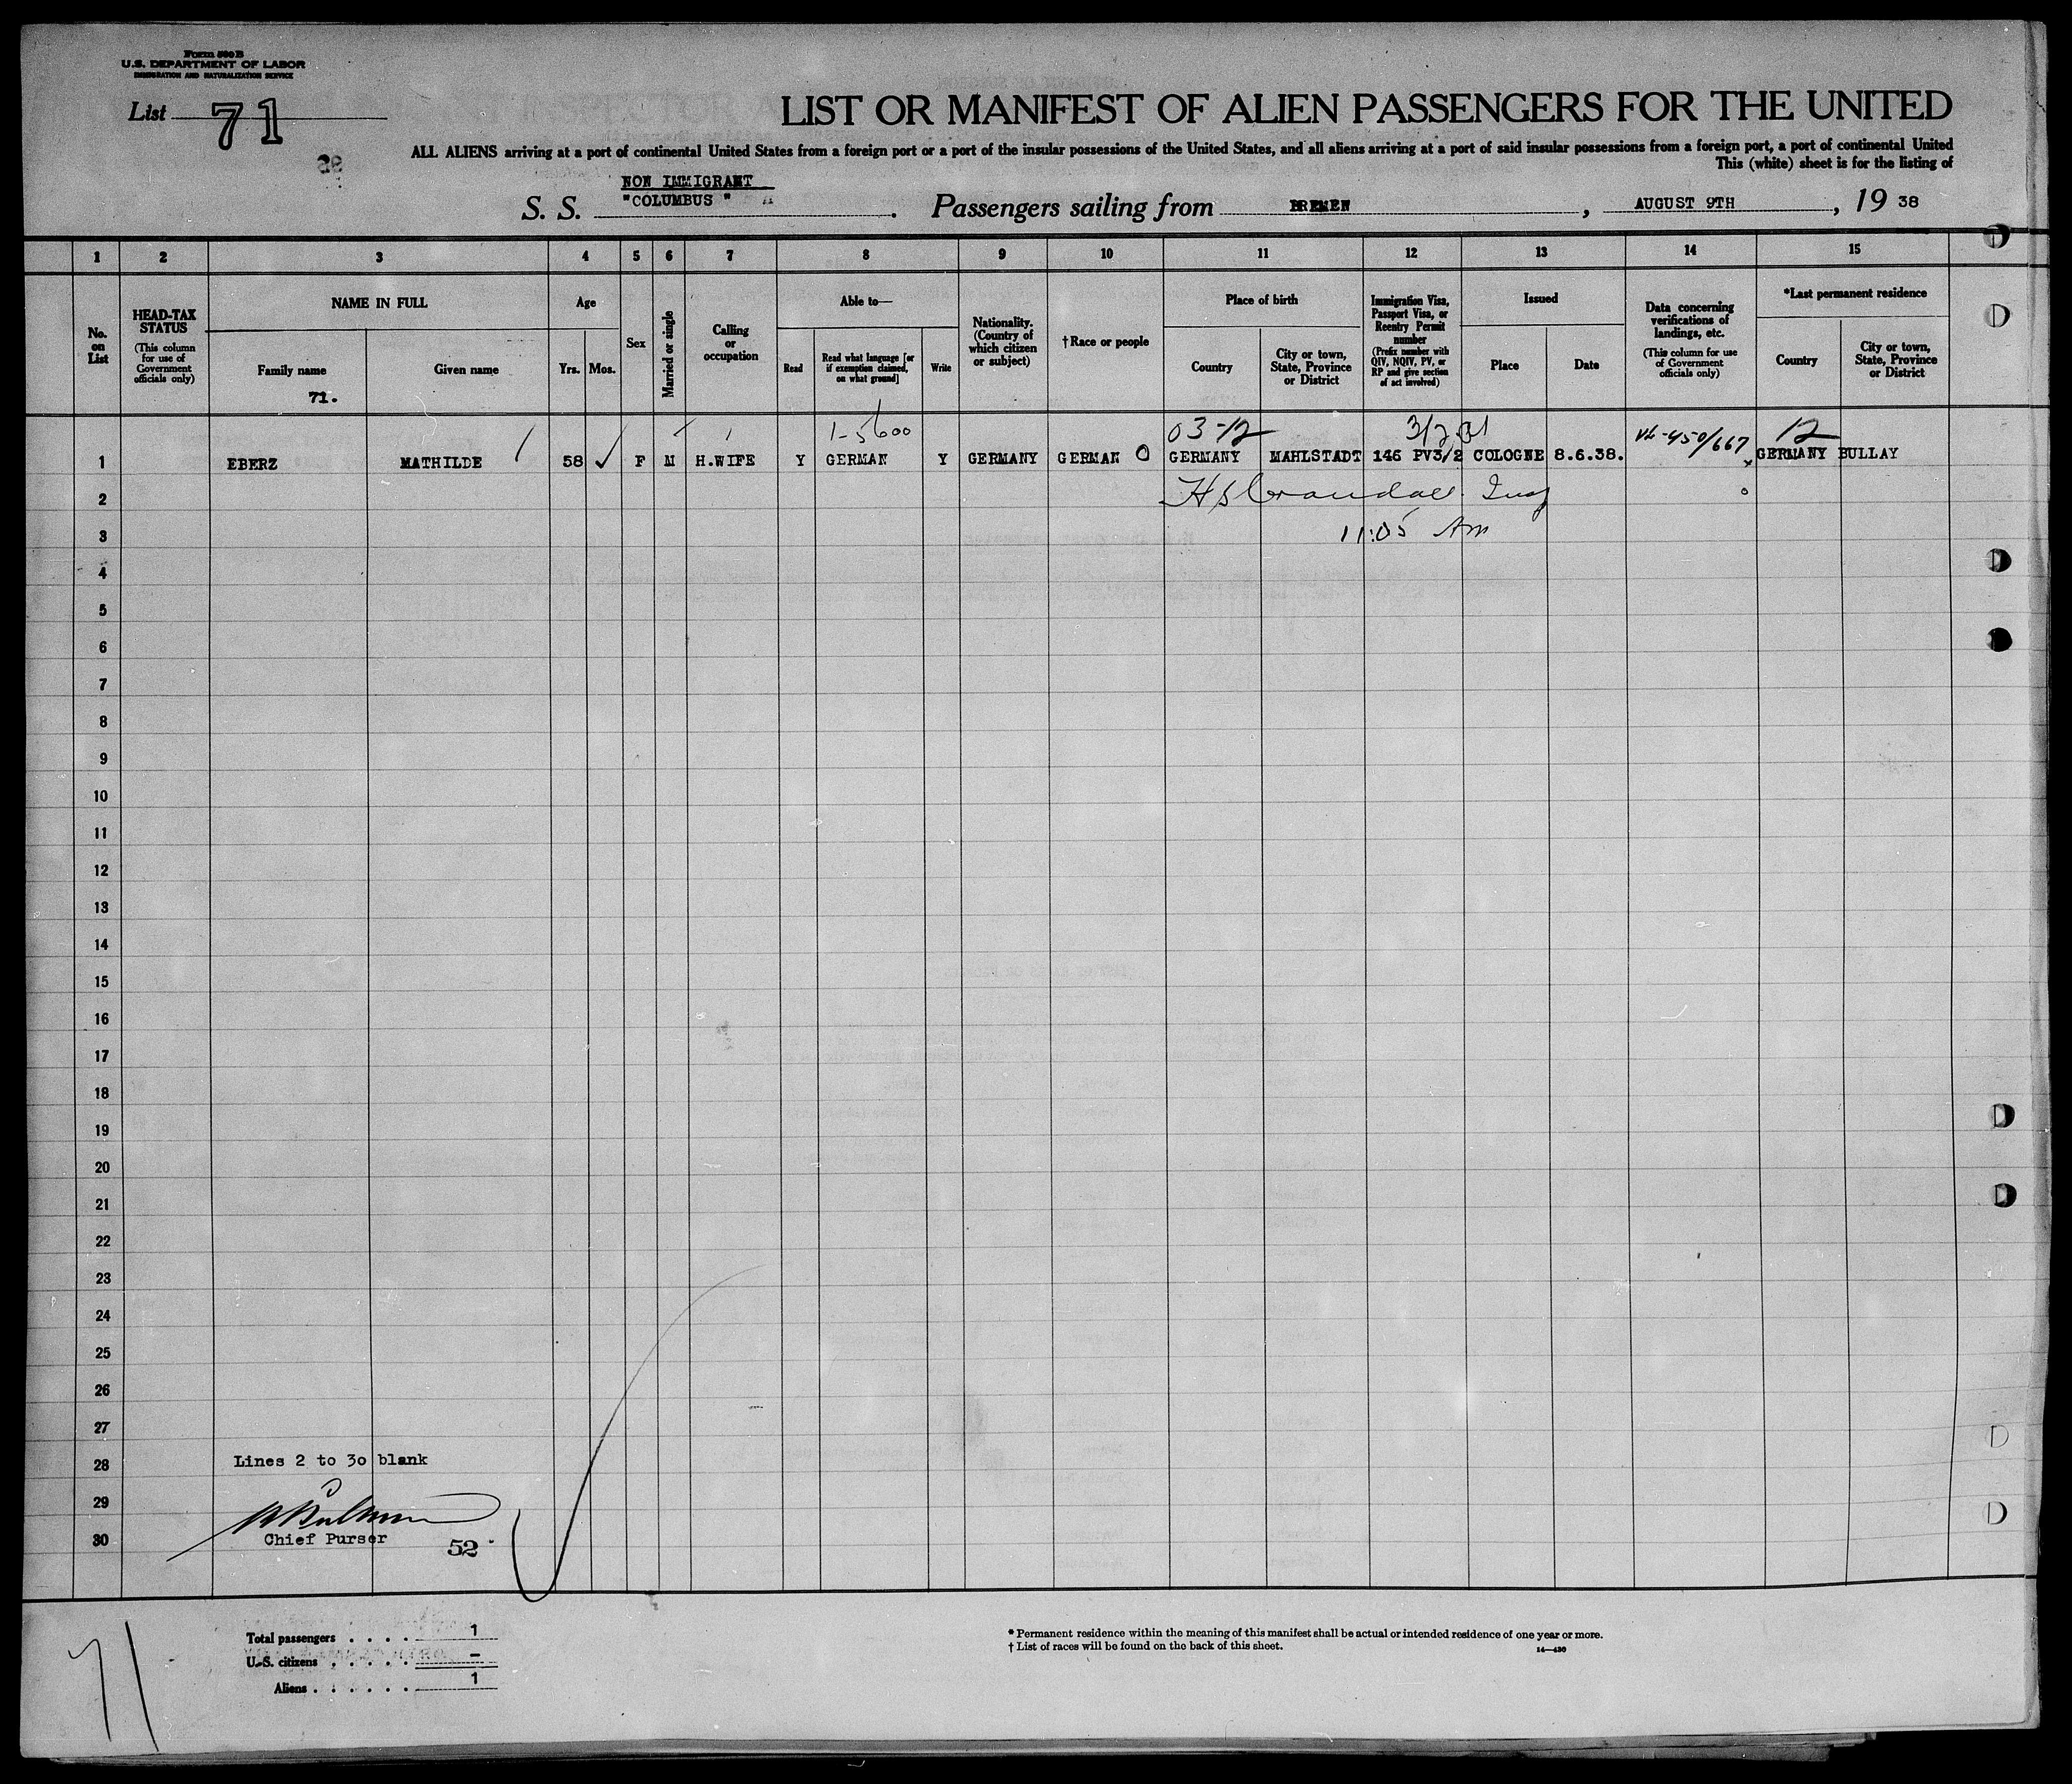 Form 500 B
U.S. DEPARTMENT OF LABOR
IMMIGRATION AND NATURALIZATION SERVICE
List 71
LIST OR MANIFEST OF ALIEN PASSENGERS FOR THE UNITED
ALL ALIENS arriving at a port of continental United States from a foreign port or a port of the insular possessions of the United States, and all aliens arriving at a port of said insular possessions from a foreign port, a port of continental United
This (white) sheet is for the listing of
NON IMMIGRANT
S. S. "COLUMBUS" . Passengers sailing from BREMEN , AUGUST 9TH , 19 38
1 2 3 4 5 6 7 8 9 10 11 12 13 14 15
No. on List
HEAD-TAX STATUS (This column for use of Government officials only)
NAME IN FULL
Family name
71.
Given name
Age
Yrs. Mos.
Sex
Married or single
Calling or occupation
Able to—
Read
Read what language [or if exemption claimed, on what ground]
Write
Nationality. (Country of which citizen or subject)
†Race or people
Place of birth
Country
City or town, State, Province or District
Immigration Visa, Passport Visa, or Reentry Permit number (Prefix number with QIV, NQIV, PV, or RP and give section of act involved)
Issued
Place
Date
Data concerning verifications of landings, etc. (This column for use of Government officials only)
*Last permanent residence
Country
City or town, State, Province or District
1-5600 03-12 12
1 EBERZ MATHILDE 58 ✓ F M H.WIFE Y GERMAN Y GERMANY GERMAN GERMANY MAHLSTADT 146 PV3/2 COLOGNE 8.6.38. GERMANY BULLAY
2
3 11:05 Am
4
5
6
7
8
9
10
11
12
13
14
15
16
17
18
19
20
21
22
23
24
25
26
27
28 Lines 2 to 30 blank
29
30 Chief Purser 52
Total passengers . . . . 1
U.S. citizens . . . . . –
Aliens . . . . . . 1
* Permanent residence within the meaning of this manifest shall be actual or intended residence of one year or more.
† List of races will be found on the back of this sheet.
14—430
71